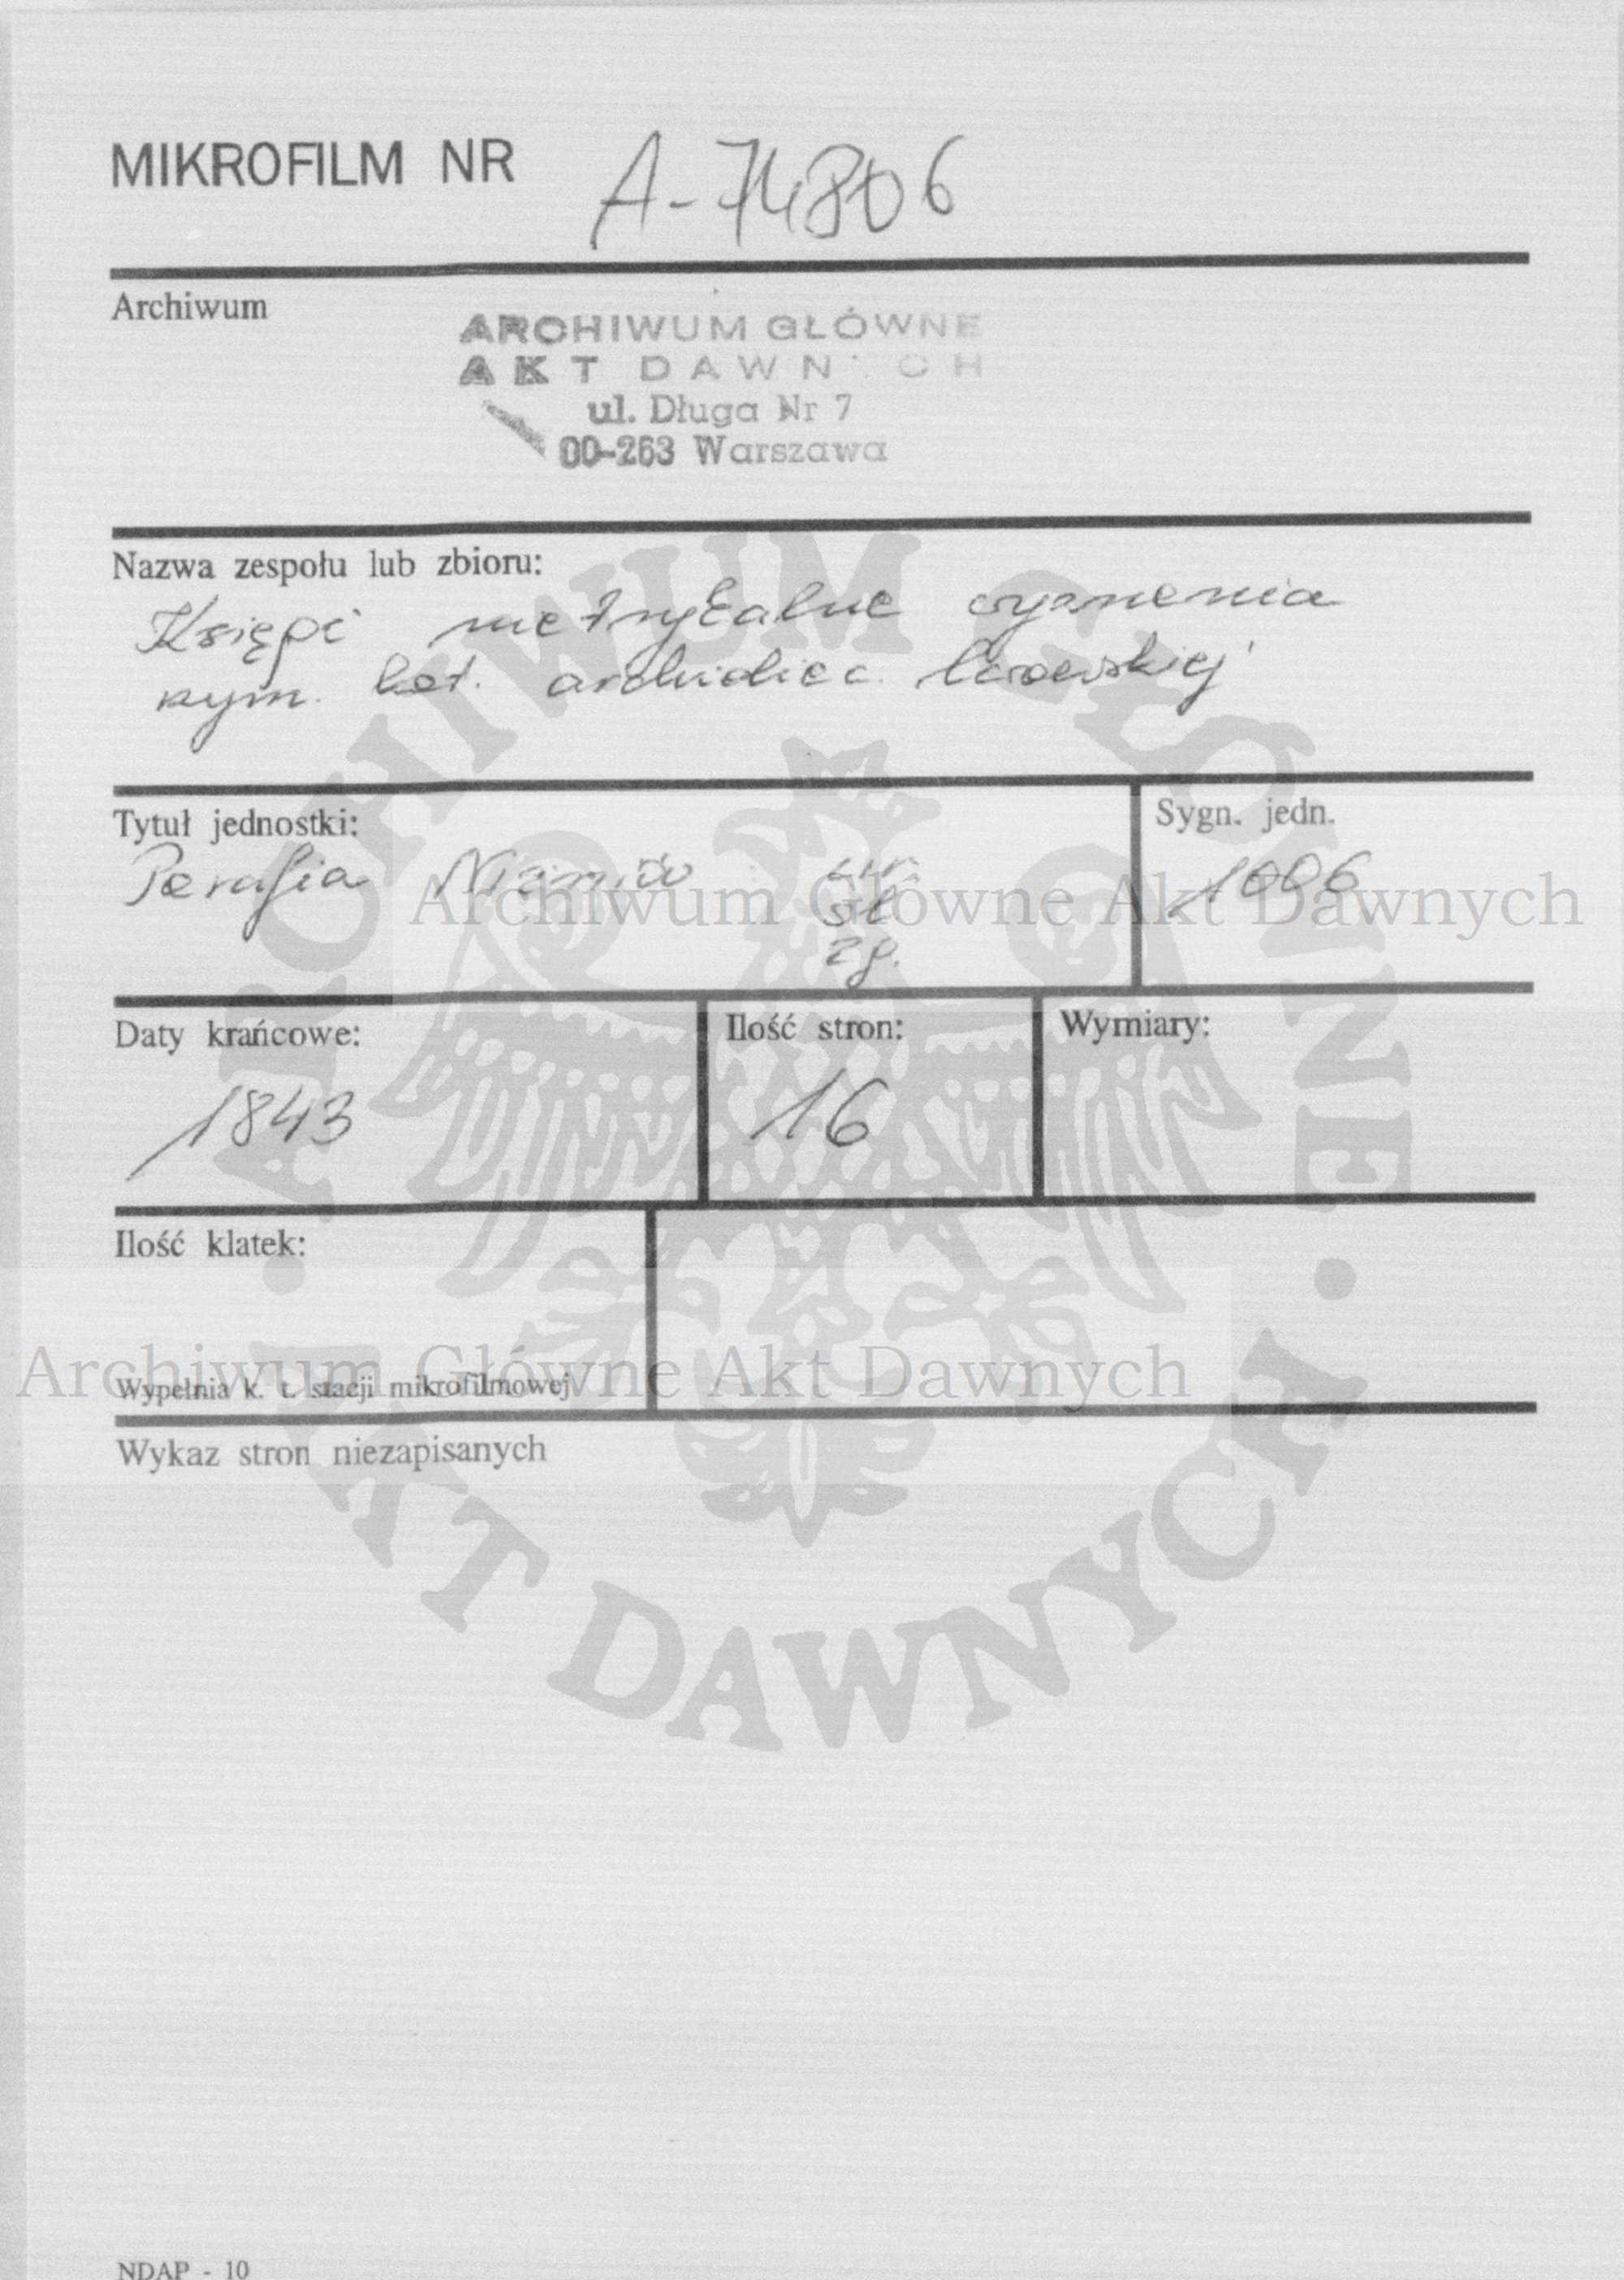 MIKROFILM NR A-74806
Archiwum
ARCHIWUM GŁÓWNE
AKT DAWN CH
ul. Długa Nr 7
00-263 Warszawa
Nazwa zespołu lub zbioru:
Księgi metrykalne wyznania
rzym. kat. archidiec. lwowskiej
Tytuł jednostki:
Sygn. jedn.
Parafia
ur.
śl.
zg.
1006
Archiwum Główne Akt Dawnych
Daty krańcowe:
Ilość stron:
Wymiary:
1843
16
Ilość klatek:
Archiwum Główne Akt Dawnych
Wypełnia k. t. stacji mikrofilmowej
Wykaz stron niezapisanych
ARCHIWUM GŁÓWNE
AKT DAWNYCH
NDAP - 10